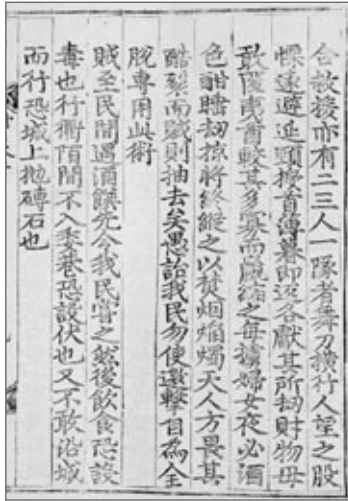 合救援亦有二三人一隊者舞刀橫行人望之股
慄遠避延頸授首薄暮即返各獻其所刼財物毋
敢匿夷酋較其多寡而贏縮之每擄婦女夜必酒
色酣睡刼掠將終縱之以焚烟焰燭天人方畏其
酷烈而賊則抽去矣愚詒我民勿使邀擊自為全
脫專用此術
賊至民間遇酒饌先令我民嘗之然後飲食恐設
毒也行衢陌間不入委巷恐設伏也又不敢沿城
而行恐城上拋磚石也